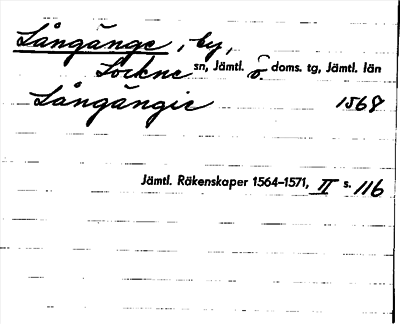 Långänge, by,
Lockne sn, Jämtl. ö. doms. tg, Jämtl. län
Långängie 1568
Jämtl. Räkenskaper 1564–1571, II s. 116